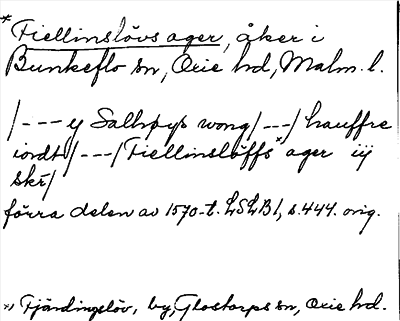 * Fiellinslövs ager, åker i
Bunkeflo sn, Oxie hd, Malm. l.
/--- ij Salhøys wong /---/ hauffre
iordt /---/ Fiellinslöffs* ager iij
skr/
förra delen av 1570-t. LSLB1, s. 444. orig.
*) Fjärdingslöv, by, Glostorps sn, Oxie hd.